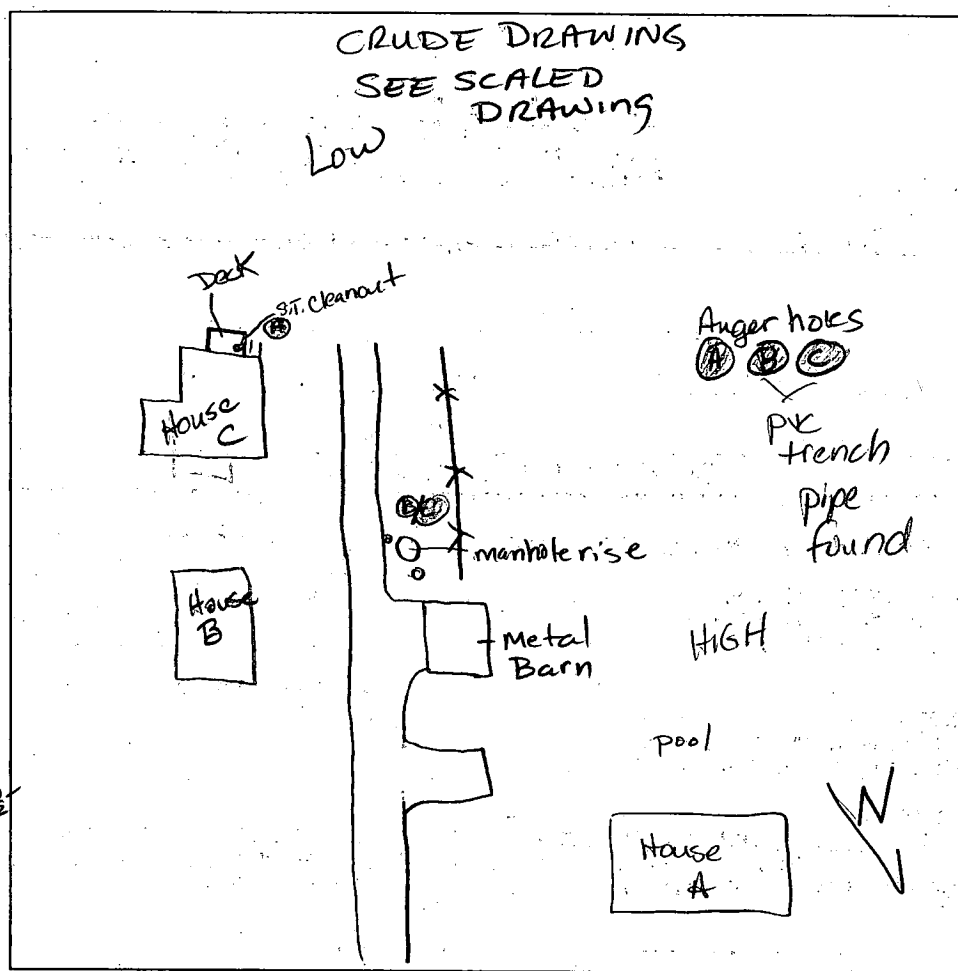 CRUDE DRAWING
SEE SCALED
DRAWING
Low
Deck
S.T. Cleanout
A
Auger holes
A B C
PVC
trench
pipe
found
House
C
B/C
manhole rise
House
B
Metal
Barn
HIGH
pool
House
A
N